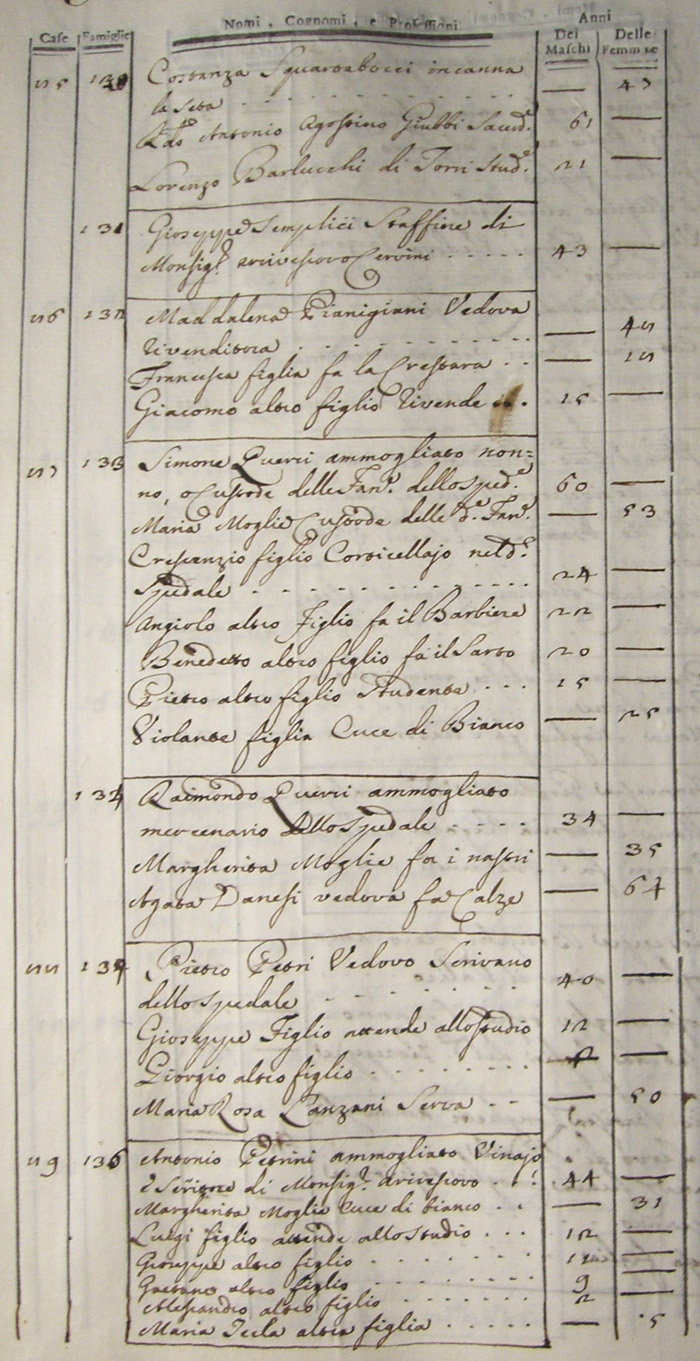 Nomi, Cognomi, e Professioni Anni
Case Famiglie Dei Maschi Delle Femmine
25 130 Costanza Squartabocci incanna
la seta - - - — 43
R.do Antonio Agostino Giubbi Sacerd.e 61 —
Lorenzo Barlucchi di Torri Stud.e 21 —
131 Gioseppe Semplici Staffiere di
Monsig.r Arcivescovo Cervini - - - 43 —
26 132 Maddalena Pianigiani Vedova
Rivenditora - - - — 42
Francesca figlia fa la Crestara - - —
Giacomo altro figlio Rivende 15 —
27 133 Simone Querci ammogliato non=
no, o Custode delle Fan.e dello Sped.e 60 —
Maria Moglie Custode delle d.e Fan.e — 53
Crescenzio figlio Corticellajo nel d.o
Spedale - - - 24 —
Angiolo altro Figlio fa il Barbiere 22 —
Benedetto altro figlio fa il Sarto 20 —
Pietro altro figlio Studente - - - 15 —
Violante figlia Cuce di Bianco — 25
134 Raimondo Querci ammogliato
mercenario dello Spedale - - - 34 —
Margherita Moglie fa i nastri — 35
Agata Danesi vedova fa Calze — 64
135 Pietro Petri Vedovo Scrivano
dello Spedale - - - 40 —
Gioseppe Figlio attende allo studio 12 —
Giorgio altro figlio - - - —
Maria Rosa Lanzani Serva - - — 50
29 136 Antonio Petrini ammogliato Vinajo
e Scrittore di Monsig.r Arcivescovo - - 44 —
Margherita Moglie Cuce di bianco - - — 31
Luigi figlio attende allo studio - - - 12 —
Gioseppe altro figlio - - - —
Gaetano altro figlio - - - 9 —
Alessandro altro figlio - - - 2 —
Maria Tecla altra figlia - - - — 5